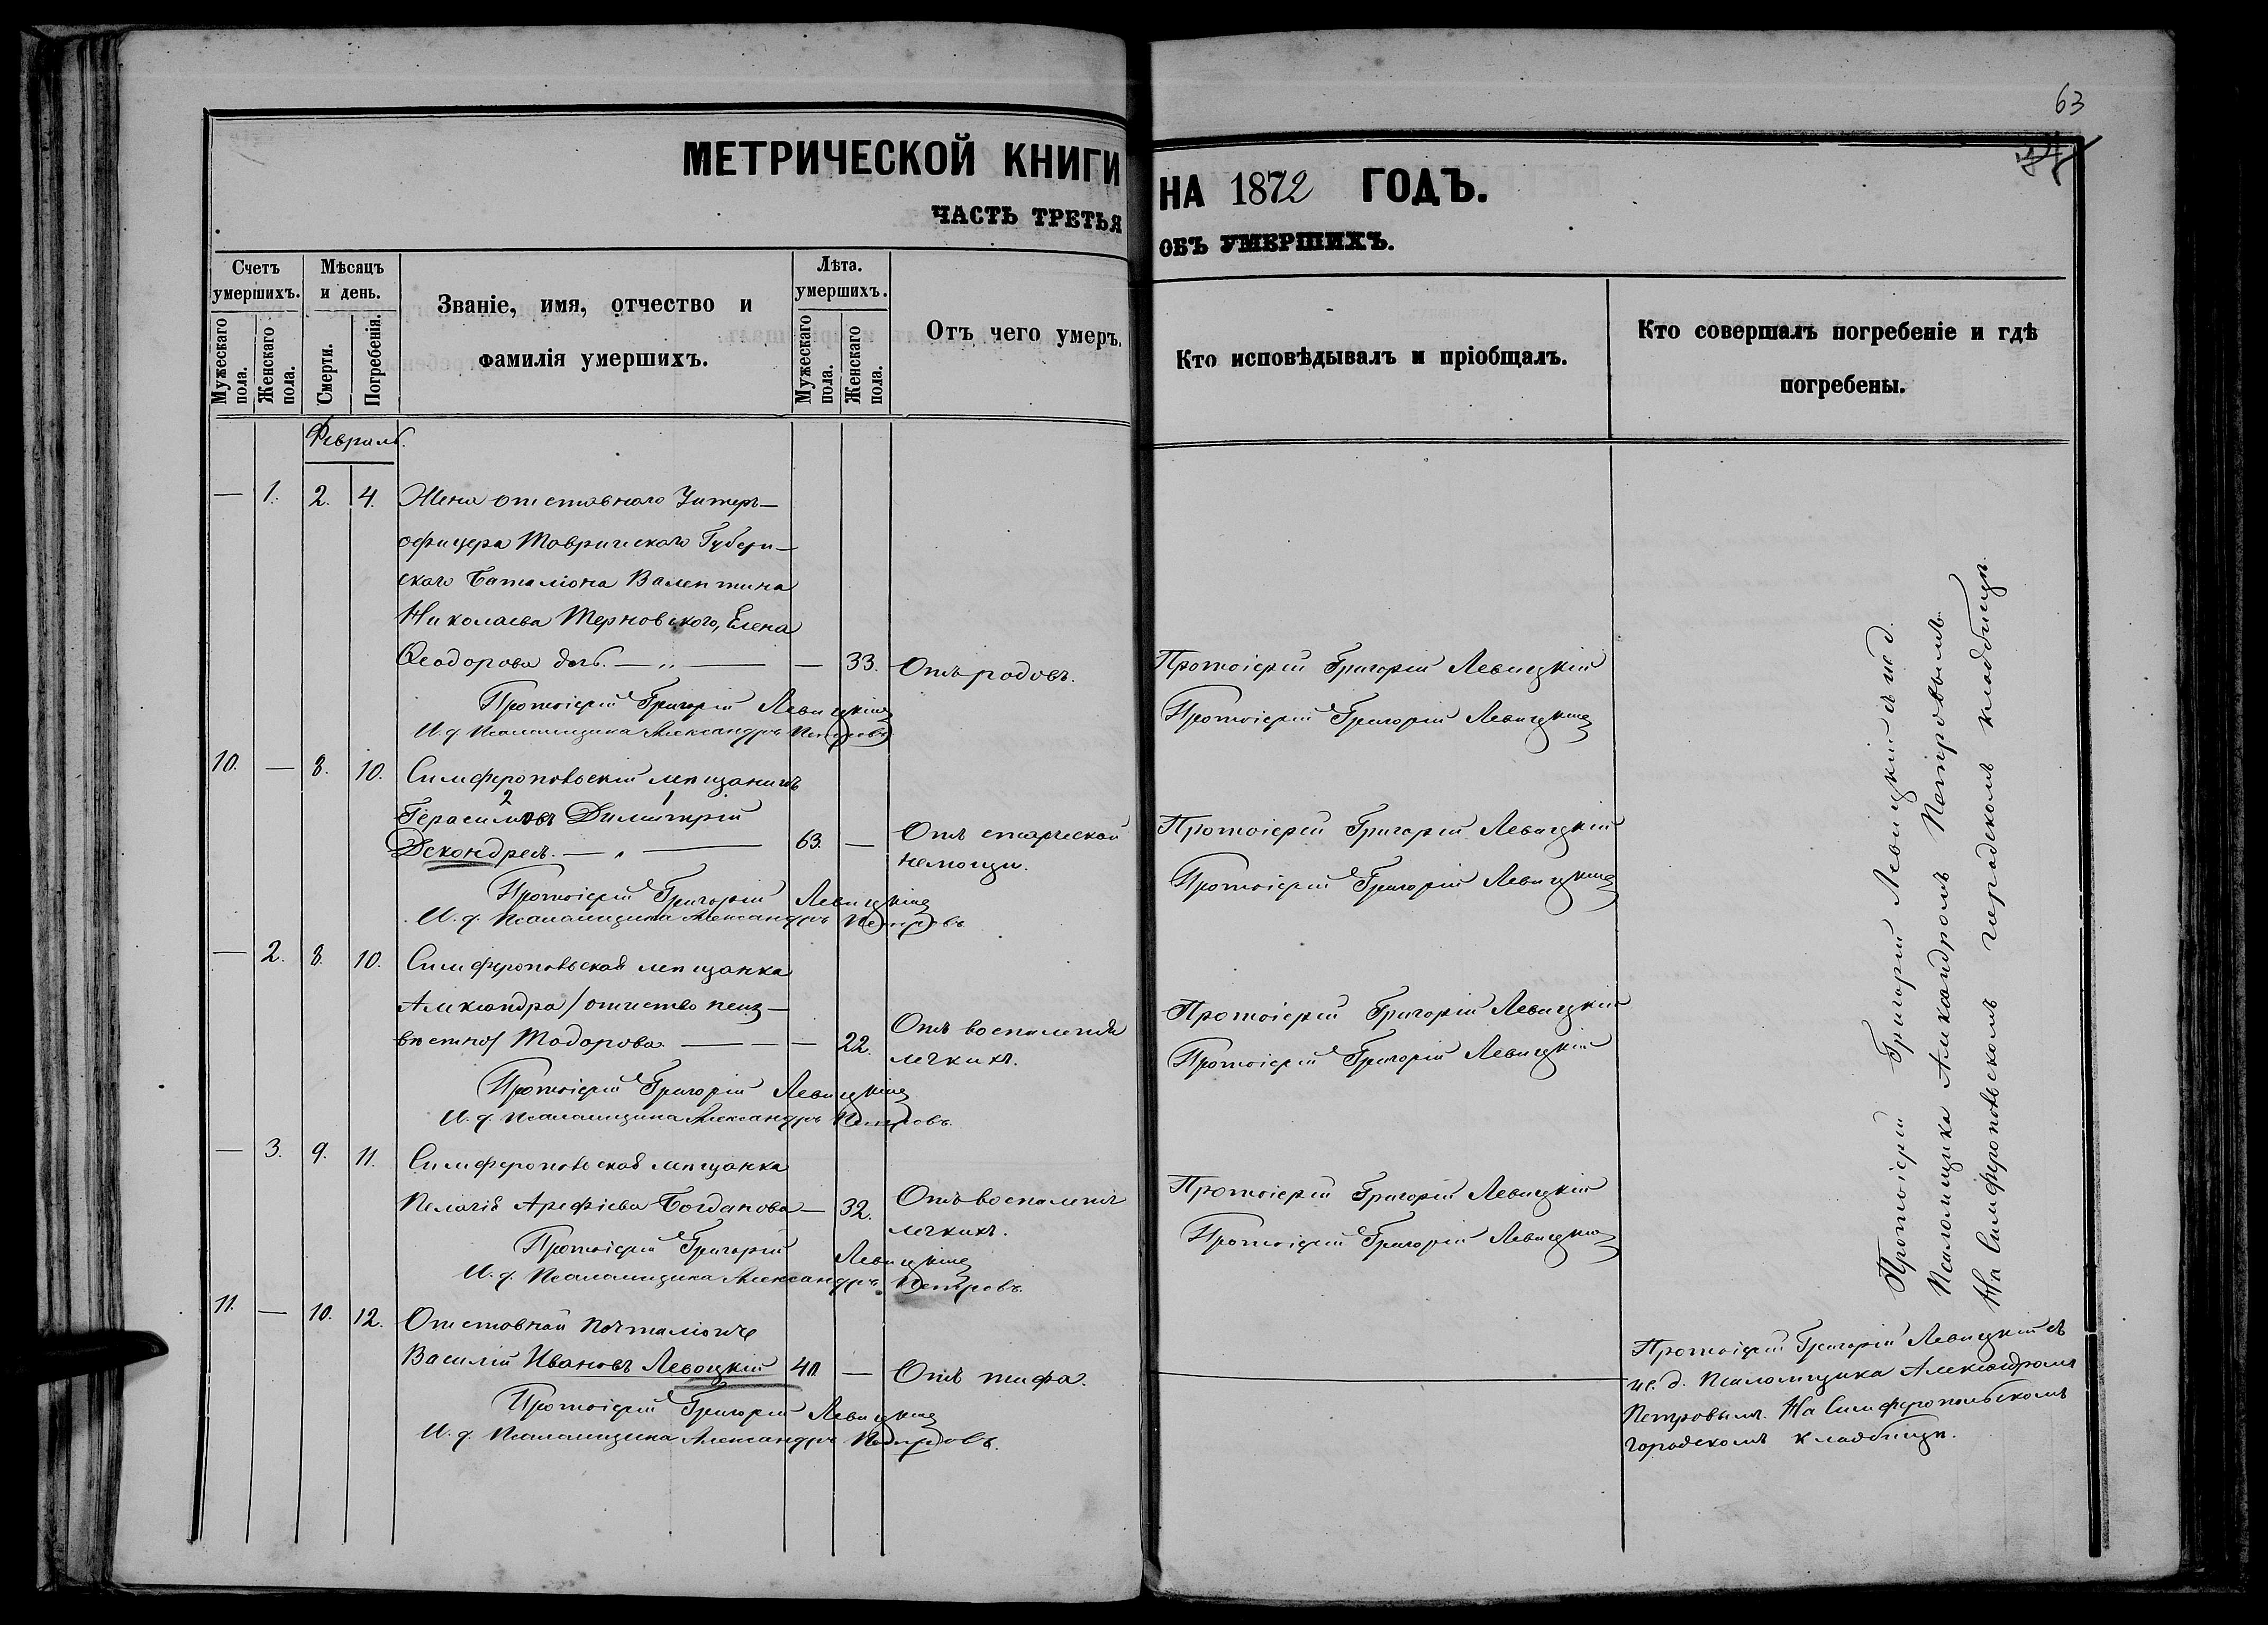 63
МЕТРИЧЕСКОЙ КНИГИ НА 1872 ГОДЪ.
ЧАСТЬ ТРЕТЬЯ ОБЪ УМЕРШИХЪ.
Счетъ умершихъ.
Мужескаго пола.
Женскаго пола.
Мѣсяцъ и день.
Смерти.
Погребенія.
Званіе, имя, отчество и
фамилія умершихъ.
Лѣта.
умершихъ.
Мужескаго пола.
Женскаго пола.
Отъ чего умеръ.
Кто исповѣдывалъ и пріобщалъ.
Кто совершалъ погребеніе и гдѣ
погребены.
Февраль.
— 1. 2. 4. Жена отставнаго Унтеръ-
офицера Таврическаго Губерн-
скаго Баталіона Валентина
Николаева Терновскаго, Елена
Ѳеодорова дочь. — „ — — 33. Отъ родовъ. Протоіерей Григорій Левицкій
Протоіерей Григорій Левицкій Протоіерей Григорій Левицкій
И. д. Псаломщика Александръ Петровъ
10. — 8. 10. Симферопольскій мѣщанинъ
2 1
Герасимовъ Димитрій
Декондрел. — „ — 63. — Отъ старческой Протоіерей Григорій Левицкій
немощи.
Протоіерей Григорій Левицкій Протоіерей Григорій Левицкій
И. д. Псаломщика Александръ Петровъ
— 2. 8. 10. Симферопольская мѣщанка
Александра /отчество неиз-
вѣстно/ Тодорова. — — — 22. Отъ воспаленія Протоіерей Григорій Левицкій
легкихъ.
Протоіерей Григорій Левицкій Протоіерей Григорій Левицкій
И. д. Псаломщика Александръ Петровъ.
— 3. 9. 11. Симферопольская мѣщанка
Пелагія Арефіева Богданова — 32. Отъ воспаленія Протоіерей Григорій Левицкій
легкихъ.
Протоіерей Григорій Левицкій Протоіерей Григорій Левицкій
И. д. Псаломщика Александръ Петровъ.
Протоіерей Григорій Левицкій съ и. д.
Псаломщика Александромъ Петровымъ.
На Симферопольскомъ городскомъ кладбищѣ.
11. — 10. 12. Отставной почталіонъ
Василій Ивановъ Левоцкій — Отъ тифа.
Протоіерей Григорій Левицкій
И. д. Псаломщика Александръ Петровъ.
Протоіерей Григорій Левицкій съ
и. д. Псаломщика Александромъ
Петровымъ. На Симферопольскомъ
городскомъ кладбищѣ.